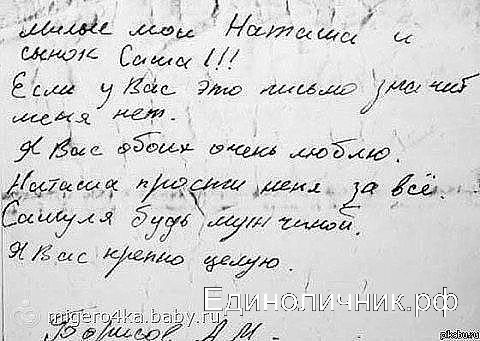 Милые мои Наташа и
сынок Саша!!!
Если у Вас это письмо значит
меня нет.
Я Вас обоих очень люблю.
Наташа прости меня за всё.
Сашуля будь мужчиной.
Я Вас крепко целую.
Единоличник.рф
migero4ka.baby.ru
Борисов А.М.
pikabu.ru